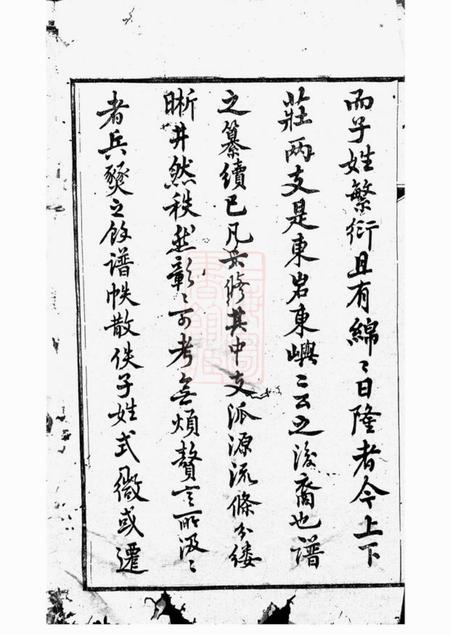 而子姓繁衍且有綿〻日隆者今上下
莊兩支是東岩東嶼二公之後裔也譜
之纂續已凡五修其中支派源流條分縷
晰井然秩然彰〻可考無煩贅言所汲〻
者兵燹之餘譜帙散佚子姓式微或遷